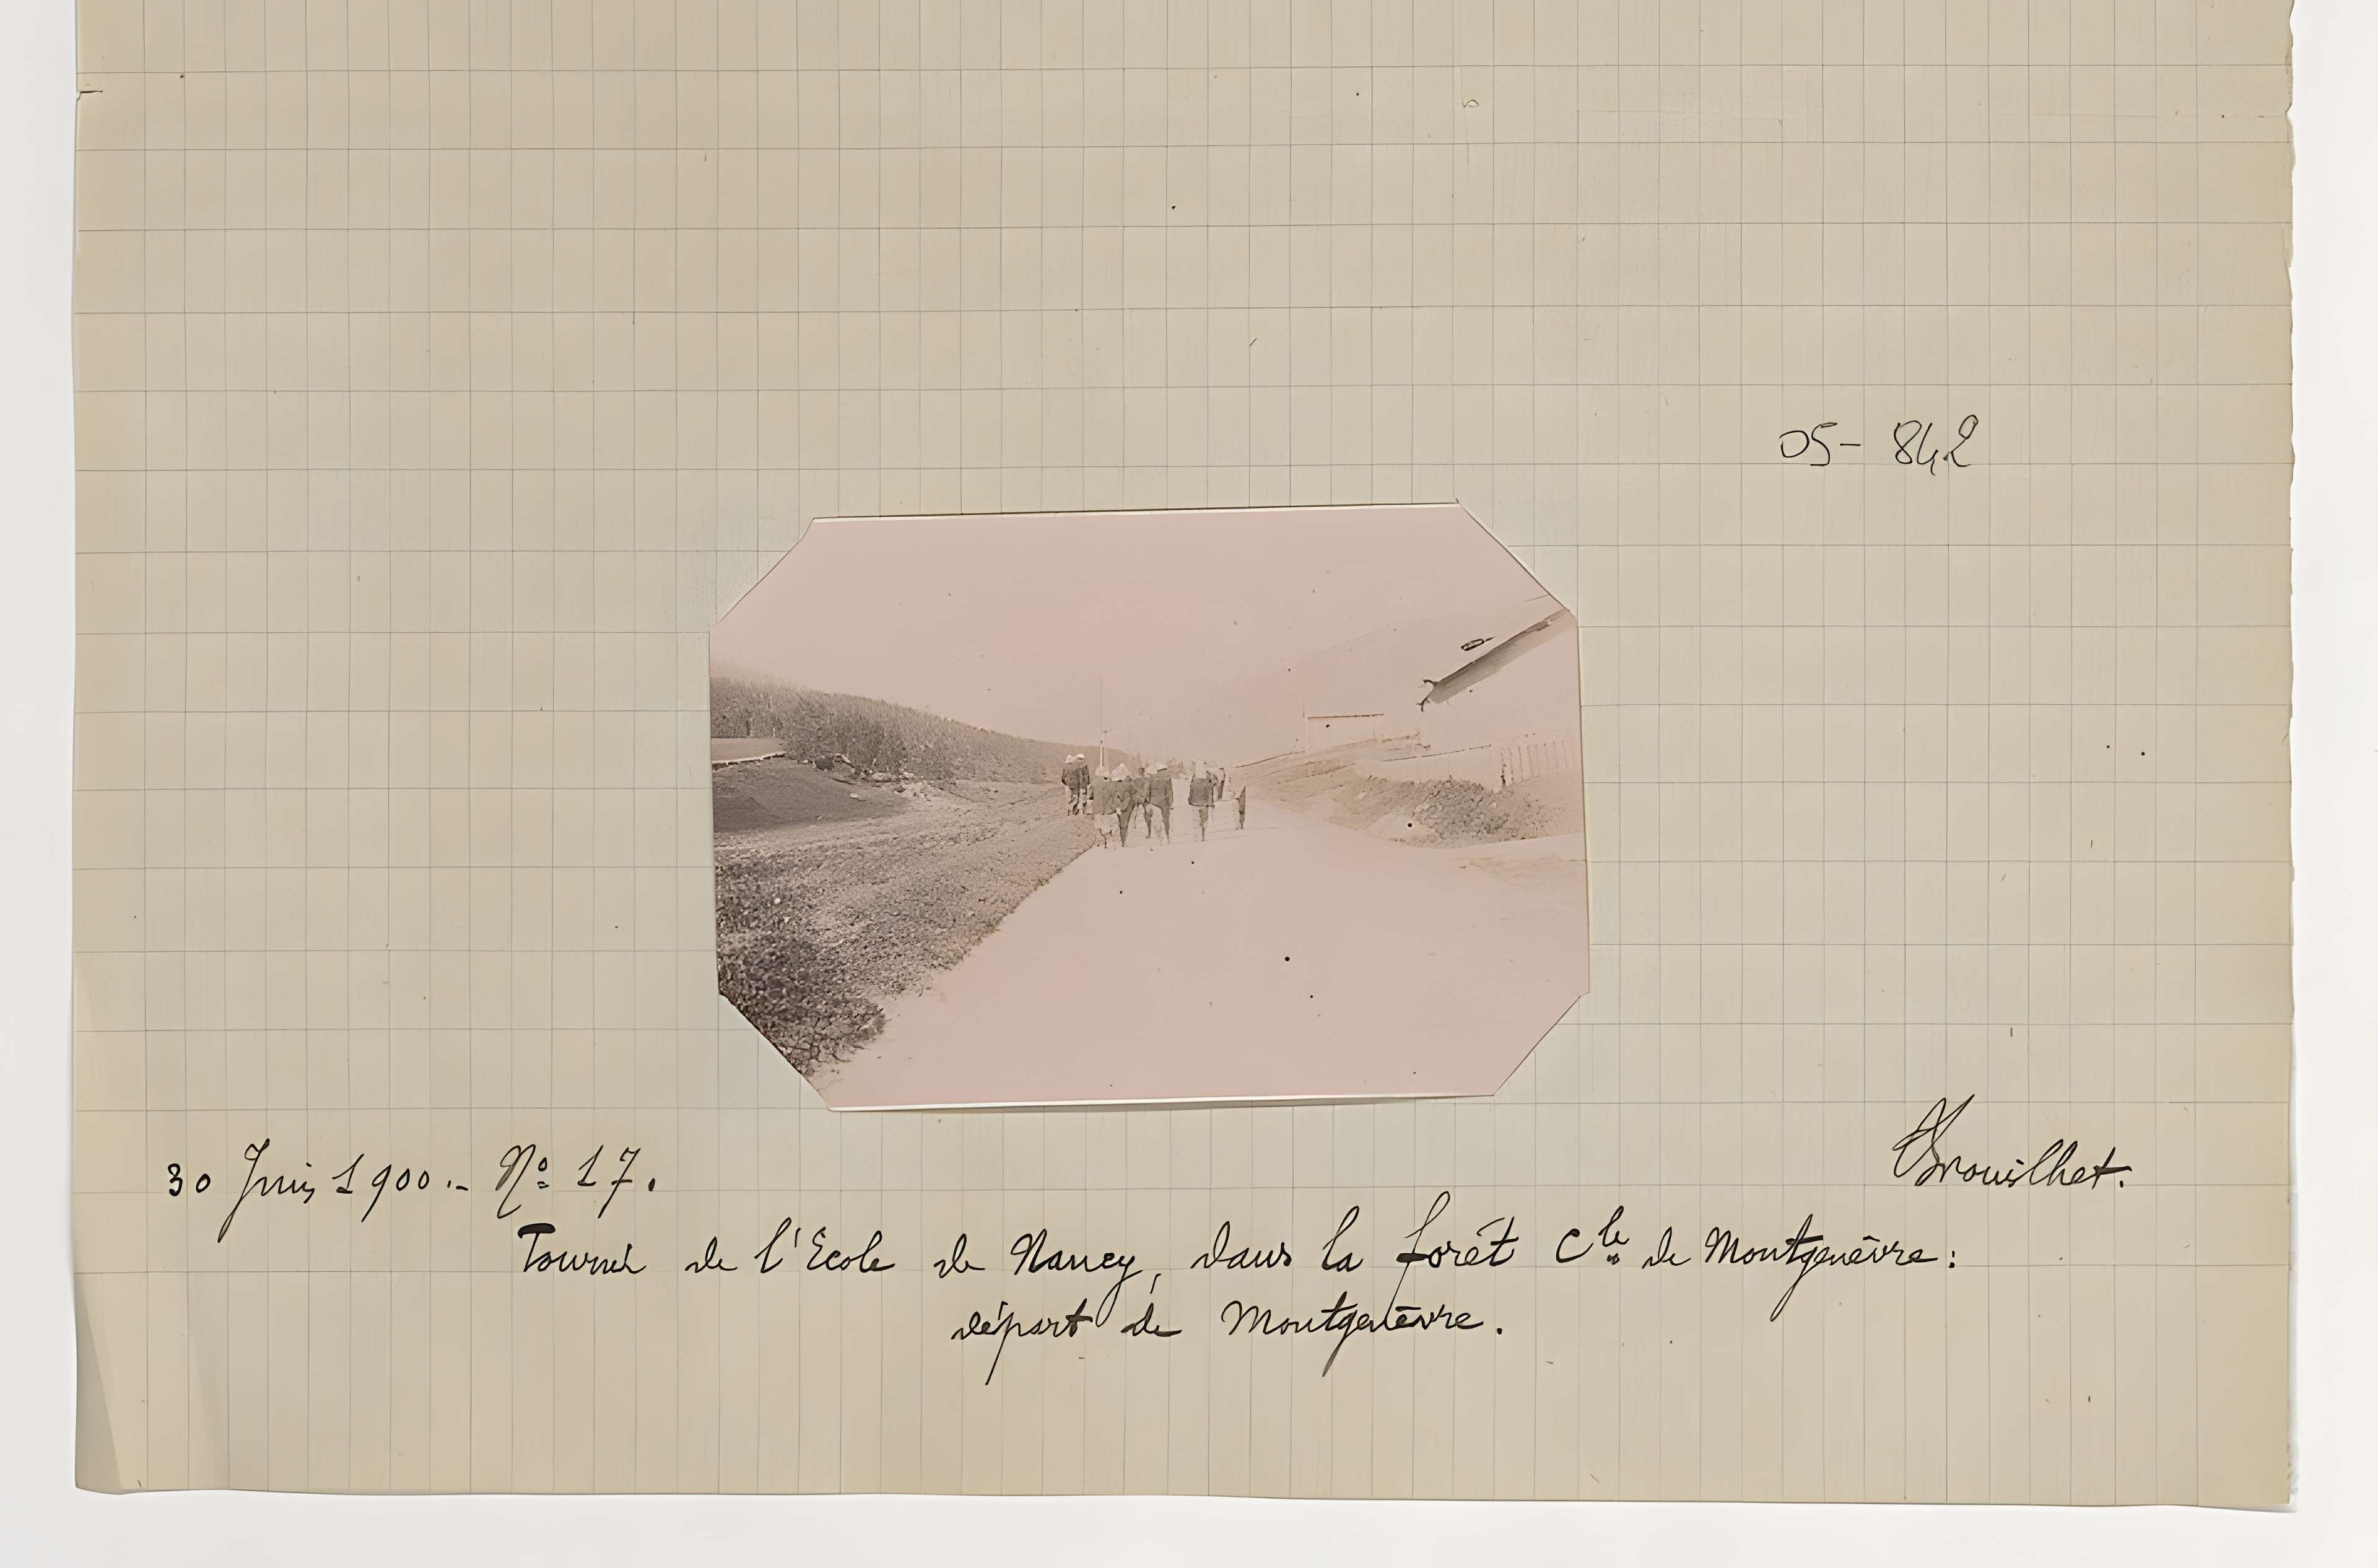 05-842
30 Juin 1900.- Nº 17.
Trouilhet.
Tournée de l'Ecole de Nancy, dans la forêt Cle de Montgenèvre:
départ de Montgenèvre.